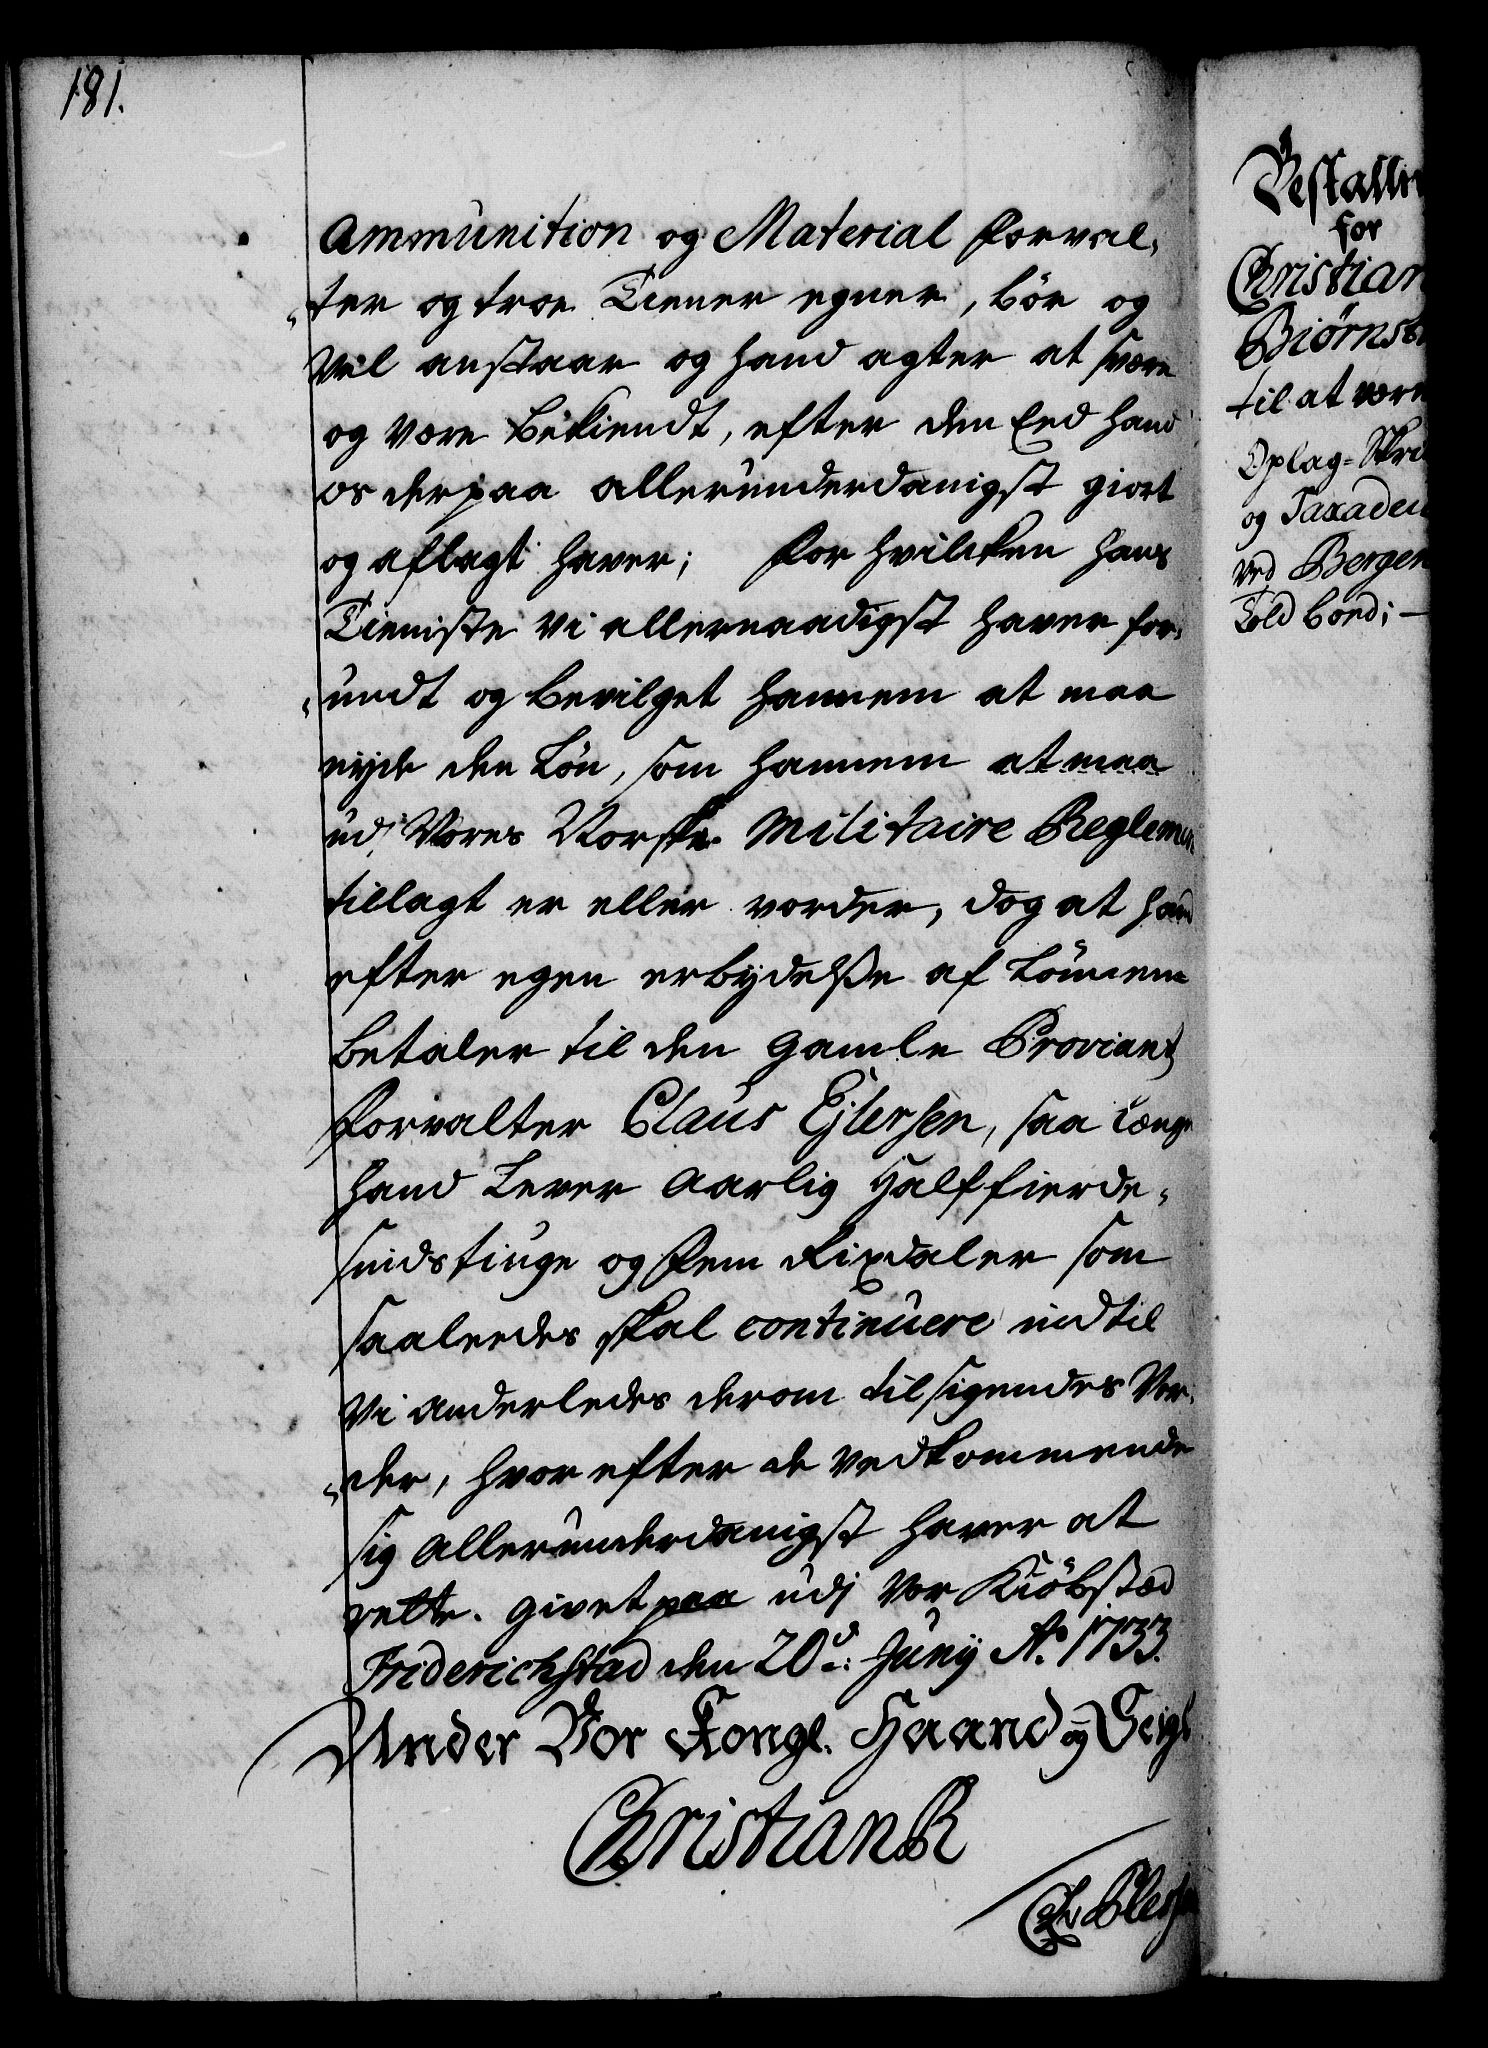 181.
Ammunition og Material Forval„
„ter og troe Tiener egner, bör og
Vel anstaar og hand agter at svare
og være bekiendt, efter den Eed hand
os derpaa allerunderdanigst giort
og aflagt haver; For hvilcken hans
Tieniste Vi allernaadigst haver for„
„undt og bevilget hannem at maa
nyde den Lön, som hannem at maa
udj Vores Norske Militaire Reglemen
tillagt er eller vorder, dog at hand
efter egen erbydelsse af Lönnen
betaler til den gamle Proviant
Forvalter Claus Ejlersen, saa længe
hand Lever Aarlig Halffierde„
sindstiuge og Fem Rixdaler som
saaleedes skal continuere indtil
Vi anderledes derom tilsigendes Vor„
„der, hvorefter de Vedkommende
sig allerunderdanigst haver at
rette. givet paa udj Vor Kiöbstæd
Friderichstad den 20de: Junij Ao. 1733.
Under Vor Kongl. Haand og Seigl
Christian R
Bestallin
for
Christian
Biørnse
til at være
Oplag-Skri
og Taxadeu
ved Bergen
Told bod; —